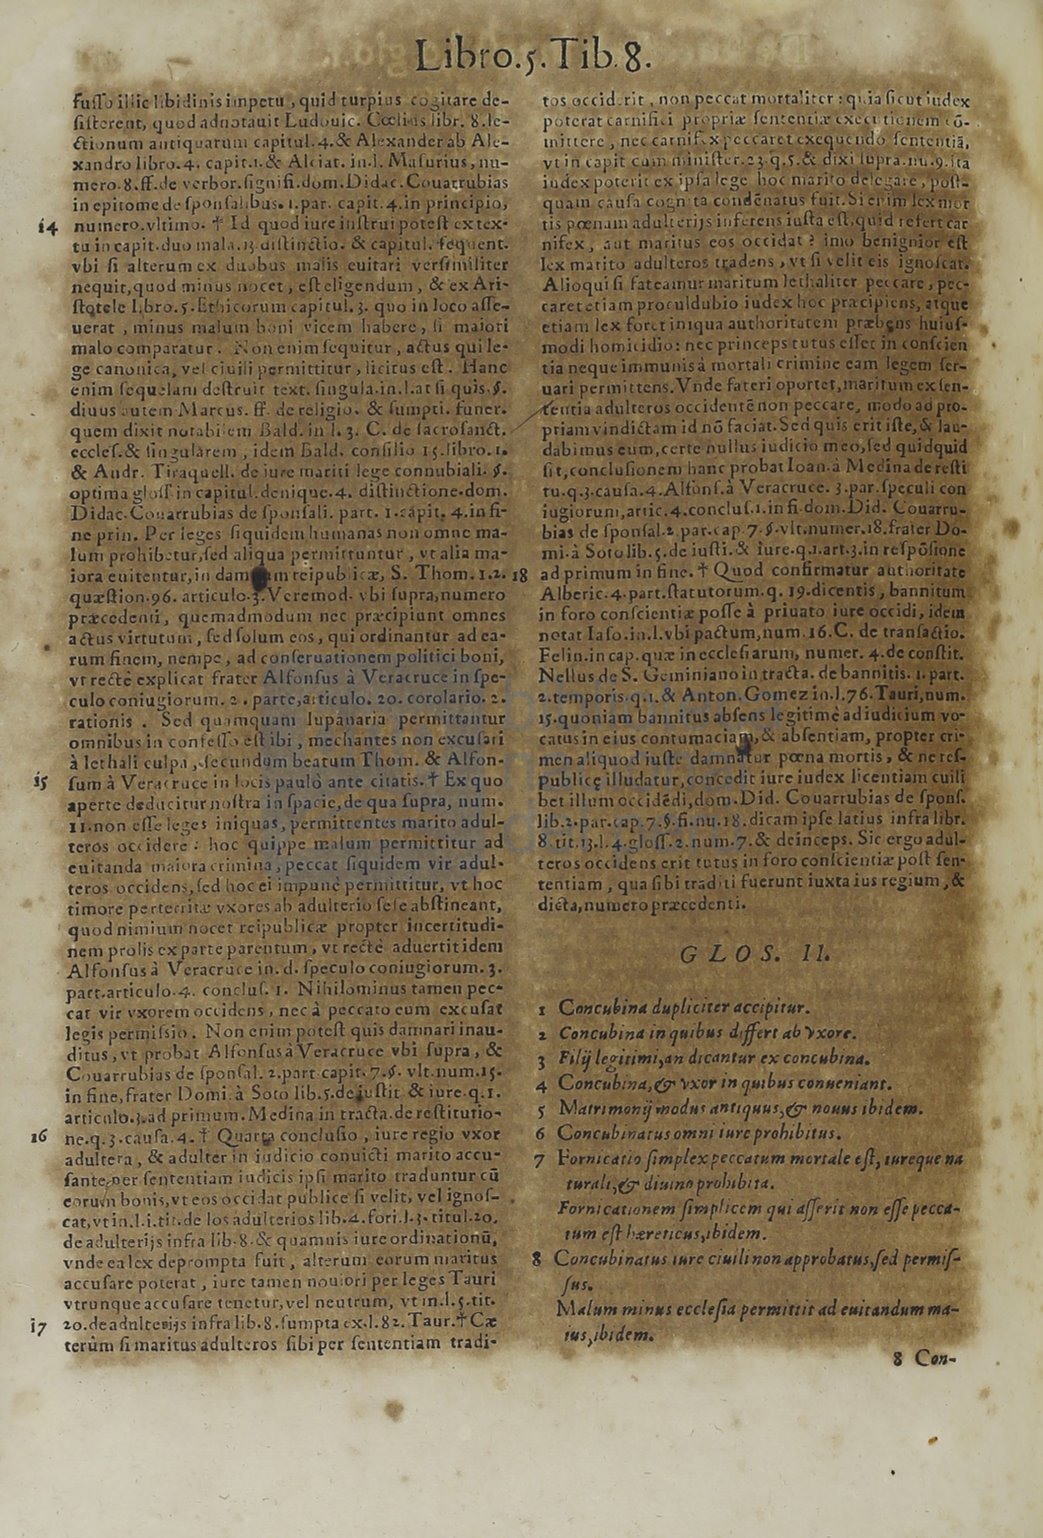 Libro.5.Tib.8.
fuſſo illic libidinis impetu, quid turpius cogitare de-
ſiſterent, quod adnotauit Ludouic. Cœlius libr. 8. le-
ctionum antiquarum capitul. 4. & Alexander ab Ale-
xandro libro. 4. capit. 1. & Alciat. in. l. Maſurius, nu-
mero. 8. ff. de verbor. ſignifi. dom. Didac. Couarrubias
in epitome de ſponſalibus. 1. par. capit. 4. in principio,
14 numero. vltimo. † Id quod iure inſtrui poteſt ex tex-
tu in capit. duo mala. 13. diſtinctio. & capitul. ſequent.
vbi ſi alterum ex duobus malis euitari verſimiliter
nequit, quod minus nocet, eſt eligendum, & ex Ari-
ſtotele libro. 5. Ethicorum capitul. 3. quo in loco aſſe-
uerat, minus malum boni vicem habere, ſi maiori
malo comparatur. Non enim ſequitur, actus qui le-
ge canonica, vel ciuili permittitur, licitus eſt. Hanc
enim ſequelam deſtruit text. ſingula. in. l. at ſi quis. §.
diuus autem Marcus. ff. de religio. & ſumpti. funer.
quem dixit notabilem Bald. in l. 3. C. de ſacroſanct.
eccleſ. & ſingularem, idem Bald. conſilio 15. libro. 1.
& Andr. Tiraquell. de iure mariti lege connubiali. §.
optima gloſſ in capitul. denique. 4. diſtinctione. dom.
Didac. Couarrubias de ſponſali. part. 1. capit. 4. in fi-
ne prin. Per leges ſiquidem humanas non omne ma-
lum prohibetur, ſed aliqua permittuntur, vt alia ma-
iora euitentur, in damnum reipublicæ, S. Thom. 1. 2.
quæſtion. 96. articulo. 3. Veremod. vbi ſupra, numero
præcedenti, quemadmodum nec præcipiunt omnes
actus virtutum, ſed ſolum eos, qui ordinantur ad ea-
rum finem, nempe, ad conſeruationem politici boni,
vt rectè explicat frater Alfonſus à Veracruce in ſpe-
culo coniugiorum. 2. parte, articulo. 20. corolario. 2.
rationis. Sed quamquam lupanaria permittantur
omnibus in confeſſo eſt ibi, mechantes non excuſari
à lethali culpa, ſecundum beatum Thom. & Alfon-
15 ſum à Veracruce in locis paulò ante citatis. † Ex quo
aperte deducitur noſtra in ſpacie, de qua ſupra, num.
11. non eſſe leges iniquas, permittentes marito adul-
teros occidere: hoc quippe malum permittitur ad
euitanda maiora crimina, peccat ſiquidem vir adul-
teros occidens, ſed hoc ei impunè permittitur, vt hoc
timore perterritæ vxores ab adulterio ſeſe abſtineant,
quod nimium nocet reipublicæ propter incertitudi-
nem prolis ex parte parentum, vt rectè aduertit idem
Alfonſus à Veracruce in. d. ſpeculo coniugiorum. 3.
part. articulo. 4. concluſ. 1. Nihilominus tamen pec-
cat vir vxorem occidens, nec à peccato eum excuſat
legis permiſsio. Non enim poteſt quis damnari inau-
ditus, vt probat Alfonſus à Veracruce vbi ſupra, &
Couarrubias de ſponſal. 2. part. capit. 7. §. vlt. num. 15.
in fine, frater Domi. à Soto lib. 5. de iuſtit & iure. q. 1.
articulo. 3. ad primum. Medina in tracta. de reſtitutio-
16 ne. q. 3. cauſa. 4. † Quarta concluſio, iure regio vxor
adultera, & adulter in iudicio conuicti marito accu-
ſante, per ſententiam iudicis ipſi marito traduntur cũ
eorum bonis, vt eos occidat publice ſi velit, vel ignoſ-
cat, vt in. l. i. tit. de los adulterios lib. 4. fori. l. 3. titul. 20.
de adulterijs infra lib. 8. & quamuis iure ordinationũ,
vnde ea lex deprompta fuit, alterum eorum maritus
accuſare poterat, iure tamen nouiori per leges Tauri
vtrunque accuſare tenetur, vel neutrum, vt in. l. 5. tit.
17 20. de adulterijs infra lib. 8. ſumpta ex. l. 82. Taur. † Cæ
terùm ſi maritus adulteros ſibi per ſententiam tradi-
tos occiderit, non peccat mortaliter: quia ſicut iudex
poterat carnifici propriæ ſententiæ executionem cõ-
mittere, nec carnifex peccaret exequendo ſententiã,
vt in capit cum miniſter. 23. q. 5. & dixi ſupra. nu. 9. ita
iudex poterit ex ipſa lege hoc marito delegare, poſt-
quam cauſa cognita condẽnatus fuit. Si enim lex mor
tis pœnam adulterijs inferens iuſta eſt, quid refert car
nifex, aut maritus eos occidat? imo benignior eſt
lex marito adulteros tradens, vt ſi velit eis ignoſcat.
Alioqui ſi fateamur maritum lethaliter peccare, pec-
caret etiam proculdubio iudex hoc præcipiens, atque
etiam lex foret iniqua authoritatem præbens huiuſ-
modi homicidio: nec princeps tutus eſſet in conſcien
tia neque immunis à mortali crimine eam legem ſer-
uari permittens. Vnde fateri oportet, maritum ex ſen-
tentia adulteros occidentẽ non peccare, modo ad pro-
priam vindictam id nõ faciat. Sed quis erit iſte, & lau-
dabimus eum, certe nullus iudicio meo, ſed quidquid
ſit, concluſionem hanc probat Ioan. à Medina de reſti
tu. q. 3. cauſa. 4. Alfonſ. à Veracruce. 3. par. ſpeculi con
iugiorum, artic. 4. concluſ. 1. in fi. dom. Did. Couarru-
bias de ſponſal. 2. par. cap. 7. §. vlt. numer. 18. frater Do-
mi. à Soto lib. 5. de iuſti. & iure. q. 1. art. 3. in reſpõſione
18 ad primum in fine. † Quod confirmatur authoritate
Alberic. 4. part. ſtatutorum. q. 19. dicentis, bannitum
in foro conſcientiæ poſſe à priuato iure occidi, idem
notat Iaſo. in. l. vbi pactum, num. 16. C. de tranſactio.
Felin. in cap. quæ in eccleſiarum, numer. 4. de conſtit.
Nellus de S. Geminiano in tracta. de bannitis. 1. part.
2. temporis. q. 1. & Anton. Gomez in. l. 76. Tauri, num.
15. quoniam bannitus abſens legitimè ad iudicium vo-
catus in eius contumaciam, & abſentiam, propter cri-
men aliquod iuſte damnatur pœna mortis, & ne reſ-
publicę illudatur, concedit iure iudex licentiam cuili
bet illum occidẽdi, dom. Did. Couarrubias de ſponſ.
lib. 2. par. cap. 7. §. fi. nu. 18. dicam ipſe latius infra libr.
8. tit. 13. l. 4. gloſſ. 2. num. 7. & deinceps. Sic ergo adul-
teros occidens erit tutus in foro conſcientiæ poſt ſen-
tentiam, qua ſibi traditi fuerunt iuxta ius regium, &
dicta, numero præcedenti.
GLOS. II.
1 Concubina dupliciter accipitur.
2 Concubina in quibus differt ab vxore.
3 Filij legitimi, an dicantur ex concubina.
4 Concubina, & vxor in quibus conueniant.
5 Matrimonij modus antiquus, & nouus ibidem.
6 Concubinatus omni iure prohibitus.
7 Fornicatio ſimplex peccatum mortale eſt, iureque na
turali, & diuino prohibita.
Fornicationem ſimplicem qui aſſerit non eſſe pecca-
tum eſt hæreticus, ibidem.
8 Concubinatus iure ciuili non approbatus, ſed permiſ-
ſus.
Malum minus eccleſia permittit ad euitandum ma-
ius, ibidem.
8 Con-